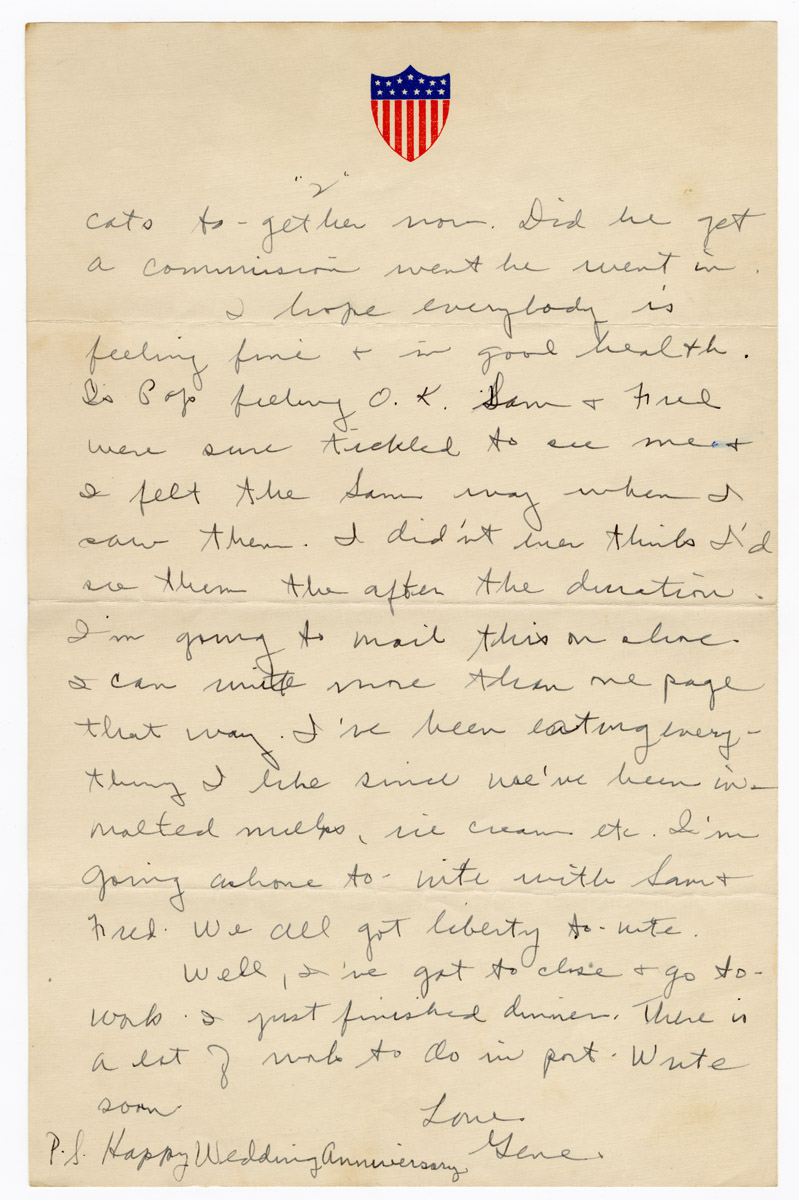 "2"
cats to-gether now. Did he get
a commission went he went in.
I hope everybody is
feeling fine + in good health.
Is Pop feeling O.K. Sam + Fred
were sure tickled to see me +
I felt the same way when I
saw them. I did'nt ever think I'd
see them the after the duration.
I'm going to mail this on shore.
I can write more than one page
that way. I've been eating every-
thing I like since we've been in-
malted milks, ice cream etc. I'm
going ashore to-nite with Sam +
Fred. We all got liberty to-nite.
Well, I've got to close + go to-
work. I just finished dinner. There is
a lot of work to do in port. Write
soon
Love
Gene.
P.S. Happy Wedding Anniversary